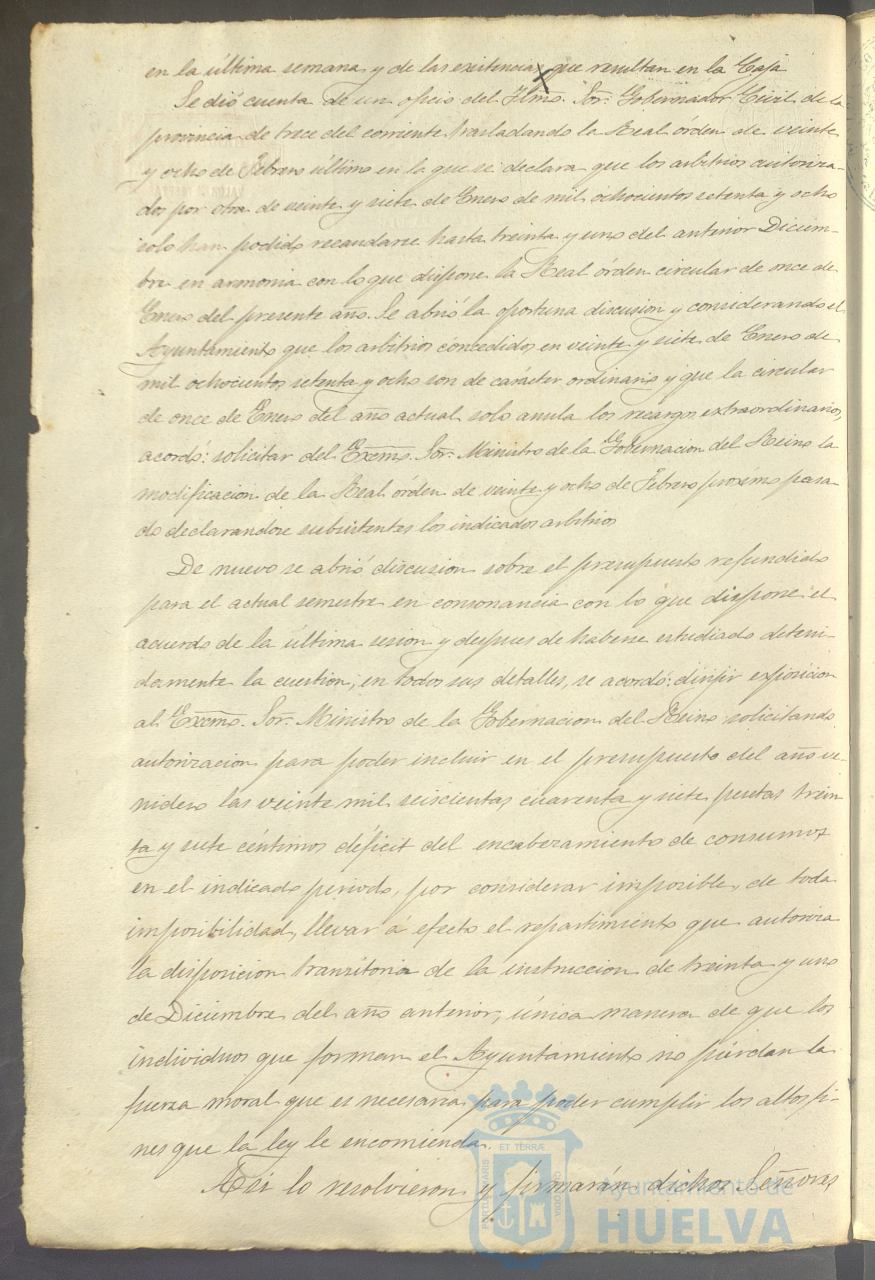 en la última semana y de las existencias que resultan en la Caja
Se dió cuenta de un oficio del Iltmo. Sor. Gobernador Civil de la
provincia de trece del corriente trasladando la Real órden de veinte
y ocho de Febrero último en la que se declara que los arbitrios autoriza-
dos por otra de veinte y siete de Enero de mil ochocientos setenta y ocho
solo han podido recaudarse hasta treinta y uno del anterior Diciem-
bre en armonia con lo que dispone la Real órden circular de once de
Enero del presente año. Se abrió la oportuna discusion y considerando el
Ayuntamiento que los arbitrios concedidos en veinte y siete de Enero de
mil ochocientos setenta y ocho son de carácter ordinario y que la circular
de once de Enero del año actual solo anula los recargos extraordinarios,
acordó: solicitar del Excmo. Sor. Ministro de la Gobernacion del Reino la
modificacion de la Real órden de veinte y ocho de Febrero proximo pasa-
do declarandose subsistentes los indicados arbitrios
De nuevo se abrió discusion sobre el presupuesto refundido
para el actual semestre en consonancia con lo que dispone el
acuerdo de la última sesion y despues de haberse estudiado deteni-
damente la cuestion, en todos sus detalles, se acordó: dirijir exposicion
al Excmo. Sor. Ministro de la Gobernacion del Reino solicitando
autorizacion para poder incluir en el presupuesto del año ve-
nidero las veinte mil seiscientas cuarenta y siete pesetas trein-
ta y siete céntimos déficit del encabezamiento de consumos
en el indicado periodo, por considerar imposible, de toda
imposibilidad, llevar á efecto el repartimiento que autoriza
la disposicion transitoria de la instruccion de treinta y uno
de Diciembre del año anterior, única manera de que los
individuos que forman el Ayuntamiento no pierdan la
fuerza moral que es necesaria para poder cumplir los altos fi-
nes que la ley le encomienda.
Asi lo resolvieron y firmarán dichos Señores
ET TERRÆ
Ayuntamiento de
HUELVA